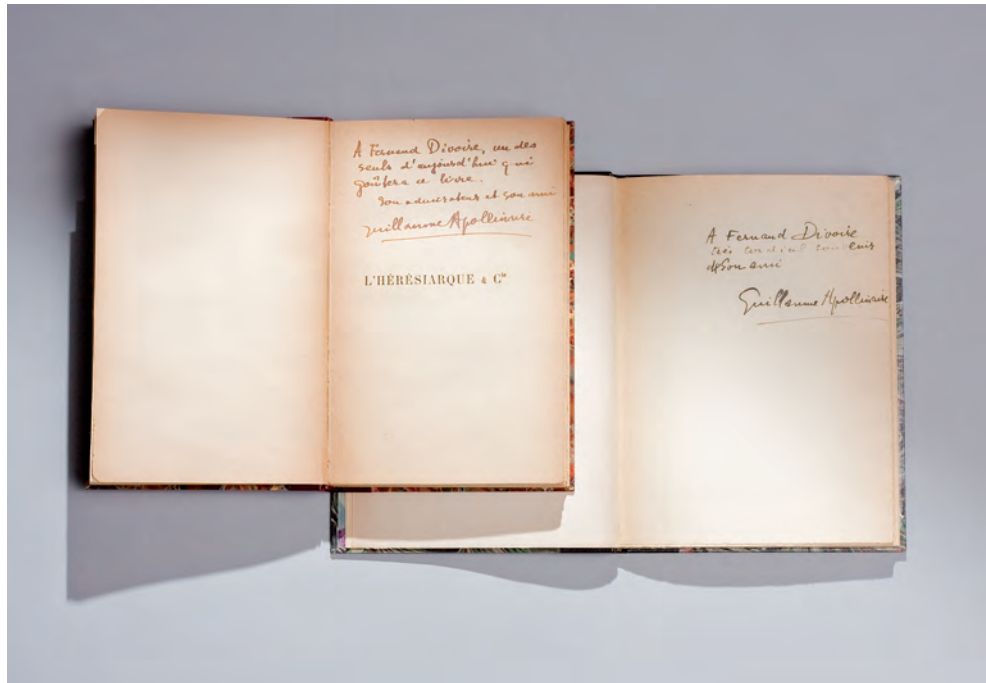 A Fernand Divoire, un des
seuls d'aujourd'hui qui
goûtera ce livre.
Son admirateur et son ami
Guillaume Apollinaire
L'HÉRÉSIARQUE & Cie
A Fernand Divoire
très cordial
son ami
Guillaume Apollinaire